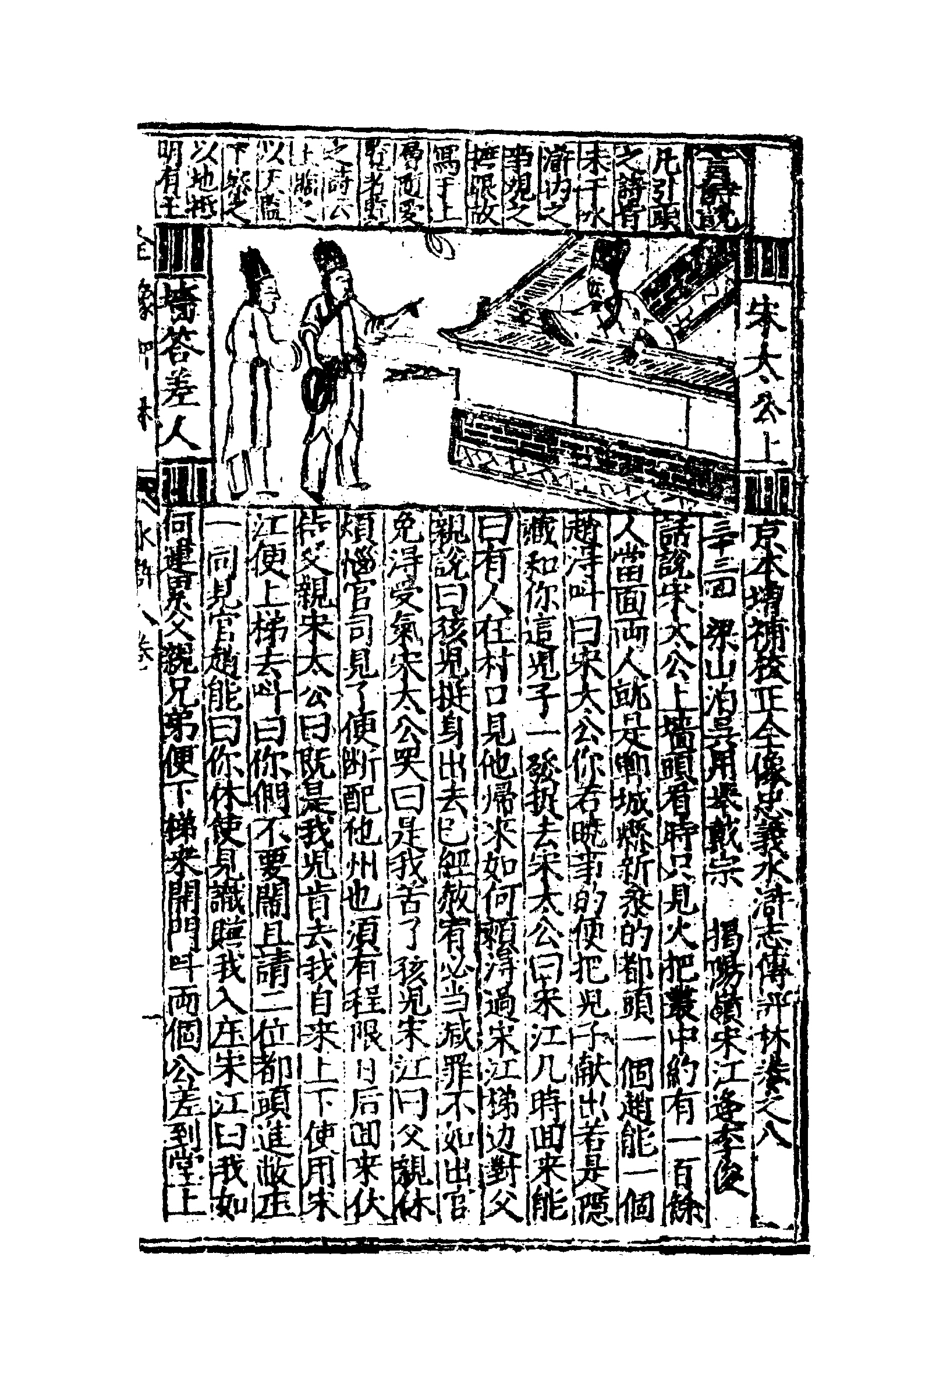 言詩說
凡引頭
之詩皆
未干水
滸內之
事觀之
摭眼故
寫于上
層而受
覽者觀
之詩云
上臨之
以天監
下察之
以地祗
明有王
宋太公上
墻答差人
京本增補校正全像忠義水滸志傳評林卷之八
三十三回 梁山泊吳用舉戴宗 揭陽嶺宋江逢李俊
話說宋太公上墻頭看時只見火把叢中約有一百餘
人當面両人就是鄆城縣新叅的都頭一個趙能一個
趙淂叫曰宋太公你若曉事的便把兒子献出若是隱
藏和你這兒子一發捉去宋太公曰宋江几時囬来能
曰有人在村口見他歸来如何賴淂過宋江梯边對父
親說曰孩兒挺身出去已經赦宥必当减罪不如出官
免淂受氣宋太公哭曰是我苦了孩兒宋江曰父親休
煩惱官司見了便断配他州也湏有程限日后囬来伏
侍父親宋太公曰既是我兒肯去我自来上下使用宋
江便上梯去叫曰你們不要鬧且請二位都頭進敝庄
一同見官趙能曰你休使見識賺我入庄宋江曰我如
何連累父親兄弟便下梯来開門叫両個公差到堂上
全像
水滸八卷